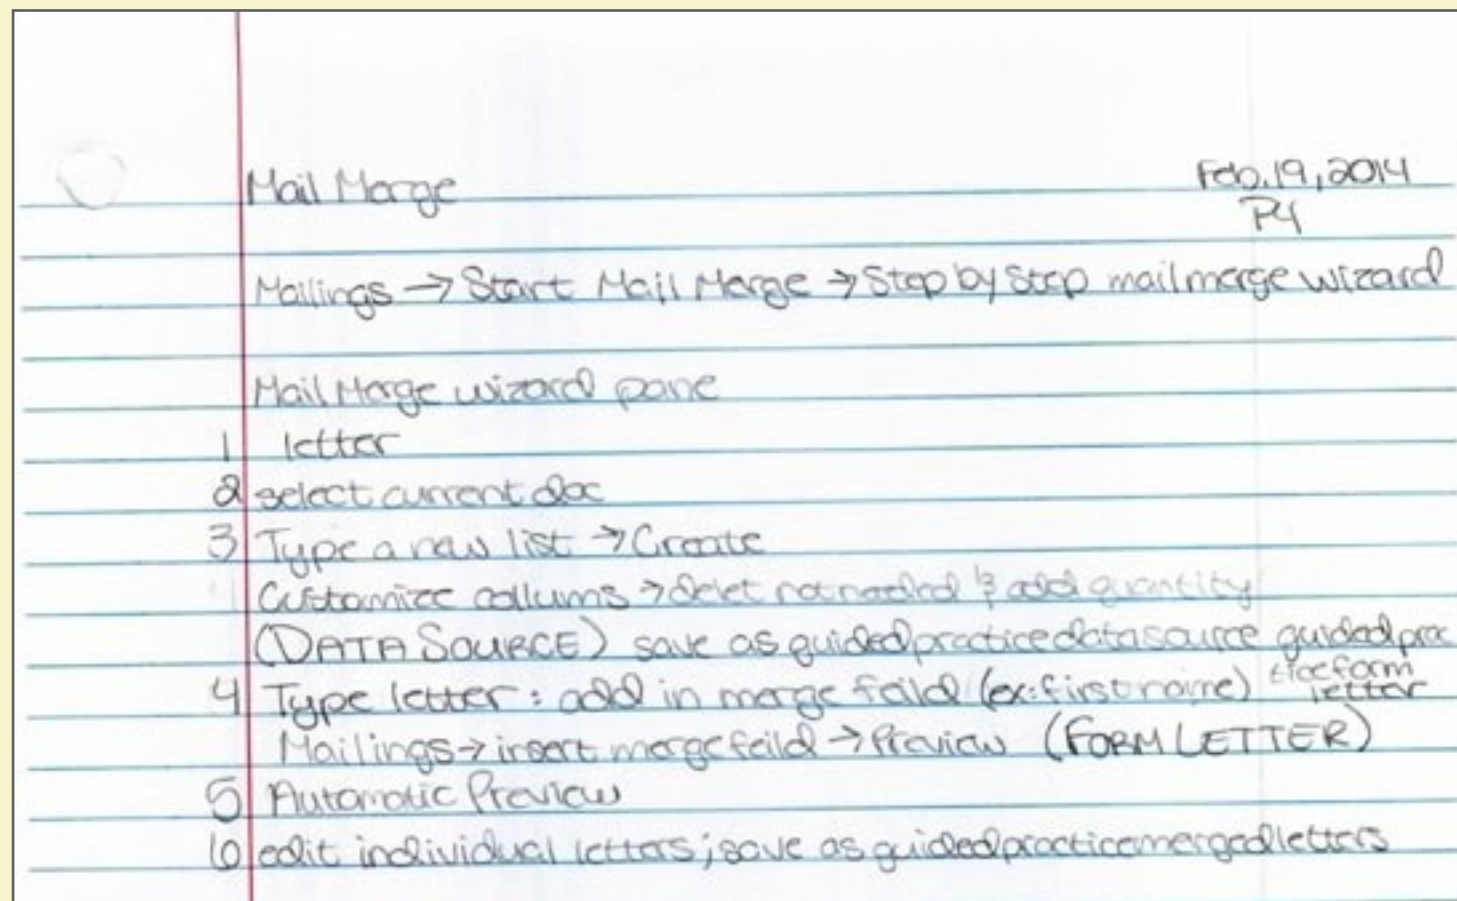 Mail Merge Feb. 19, 2014
P4
Mailings → Start Mail Merge → Step by Step mail merge wizard
Mail Merge wizard pane
1 letter
2 select current doc
3 Type a new list → Create
Customize collums → delet not needed & add quantity
(DATA SOURCE) save as guidedpracticedatasource guidedprac
4 Type letter: add in merge feild (ex: first name) ticeform letter
Mailings → insert merge feild → Preview (FORM LETTER)
5 Automatic Preview
6 edit individual letters; save as guidedpracticemergedletters